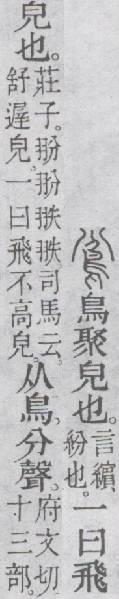 鳻鳥聚皃也。言繽紛也。一曰飛
皃也。莊子。翂翂翐翐。司馬云。舒遲皃。一曰飛不高皃。从鳥、分聲。府文切。十三部。